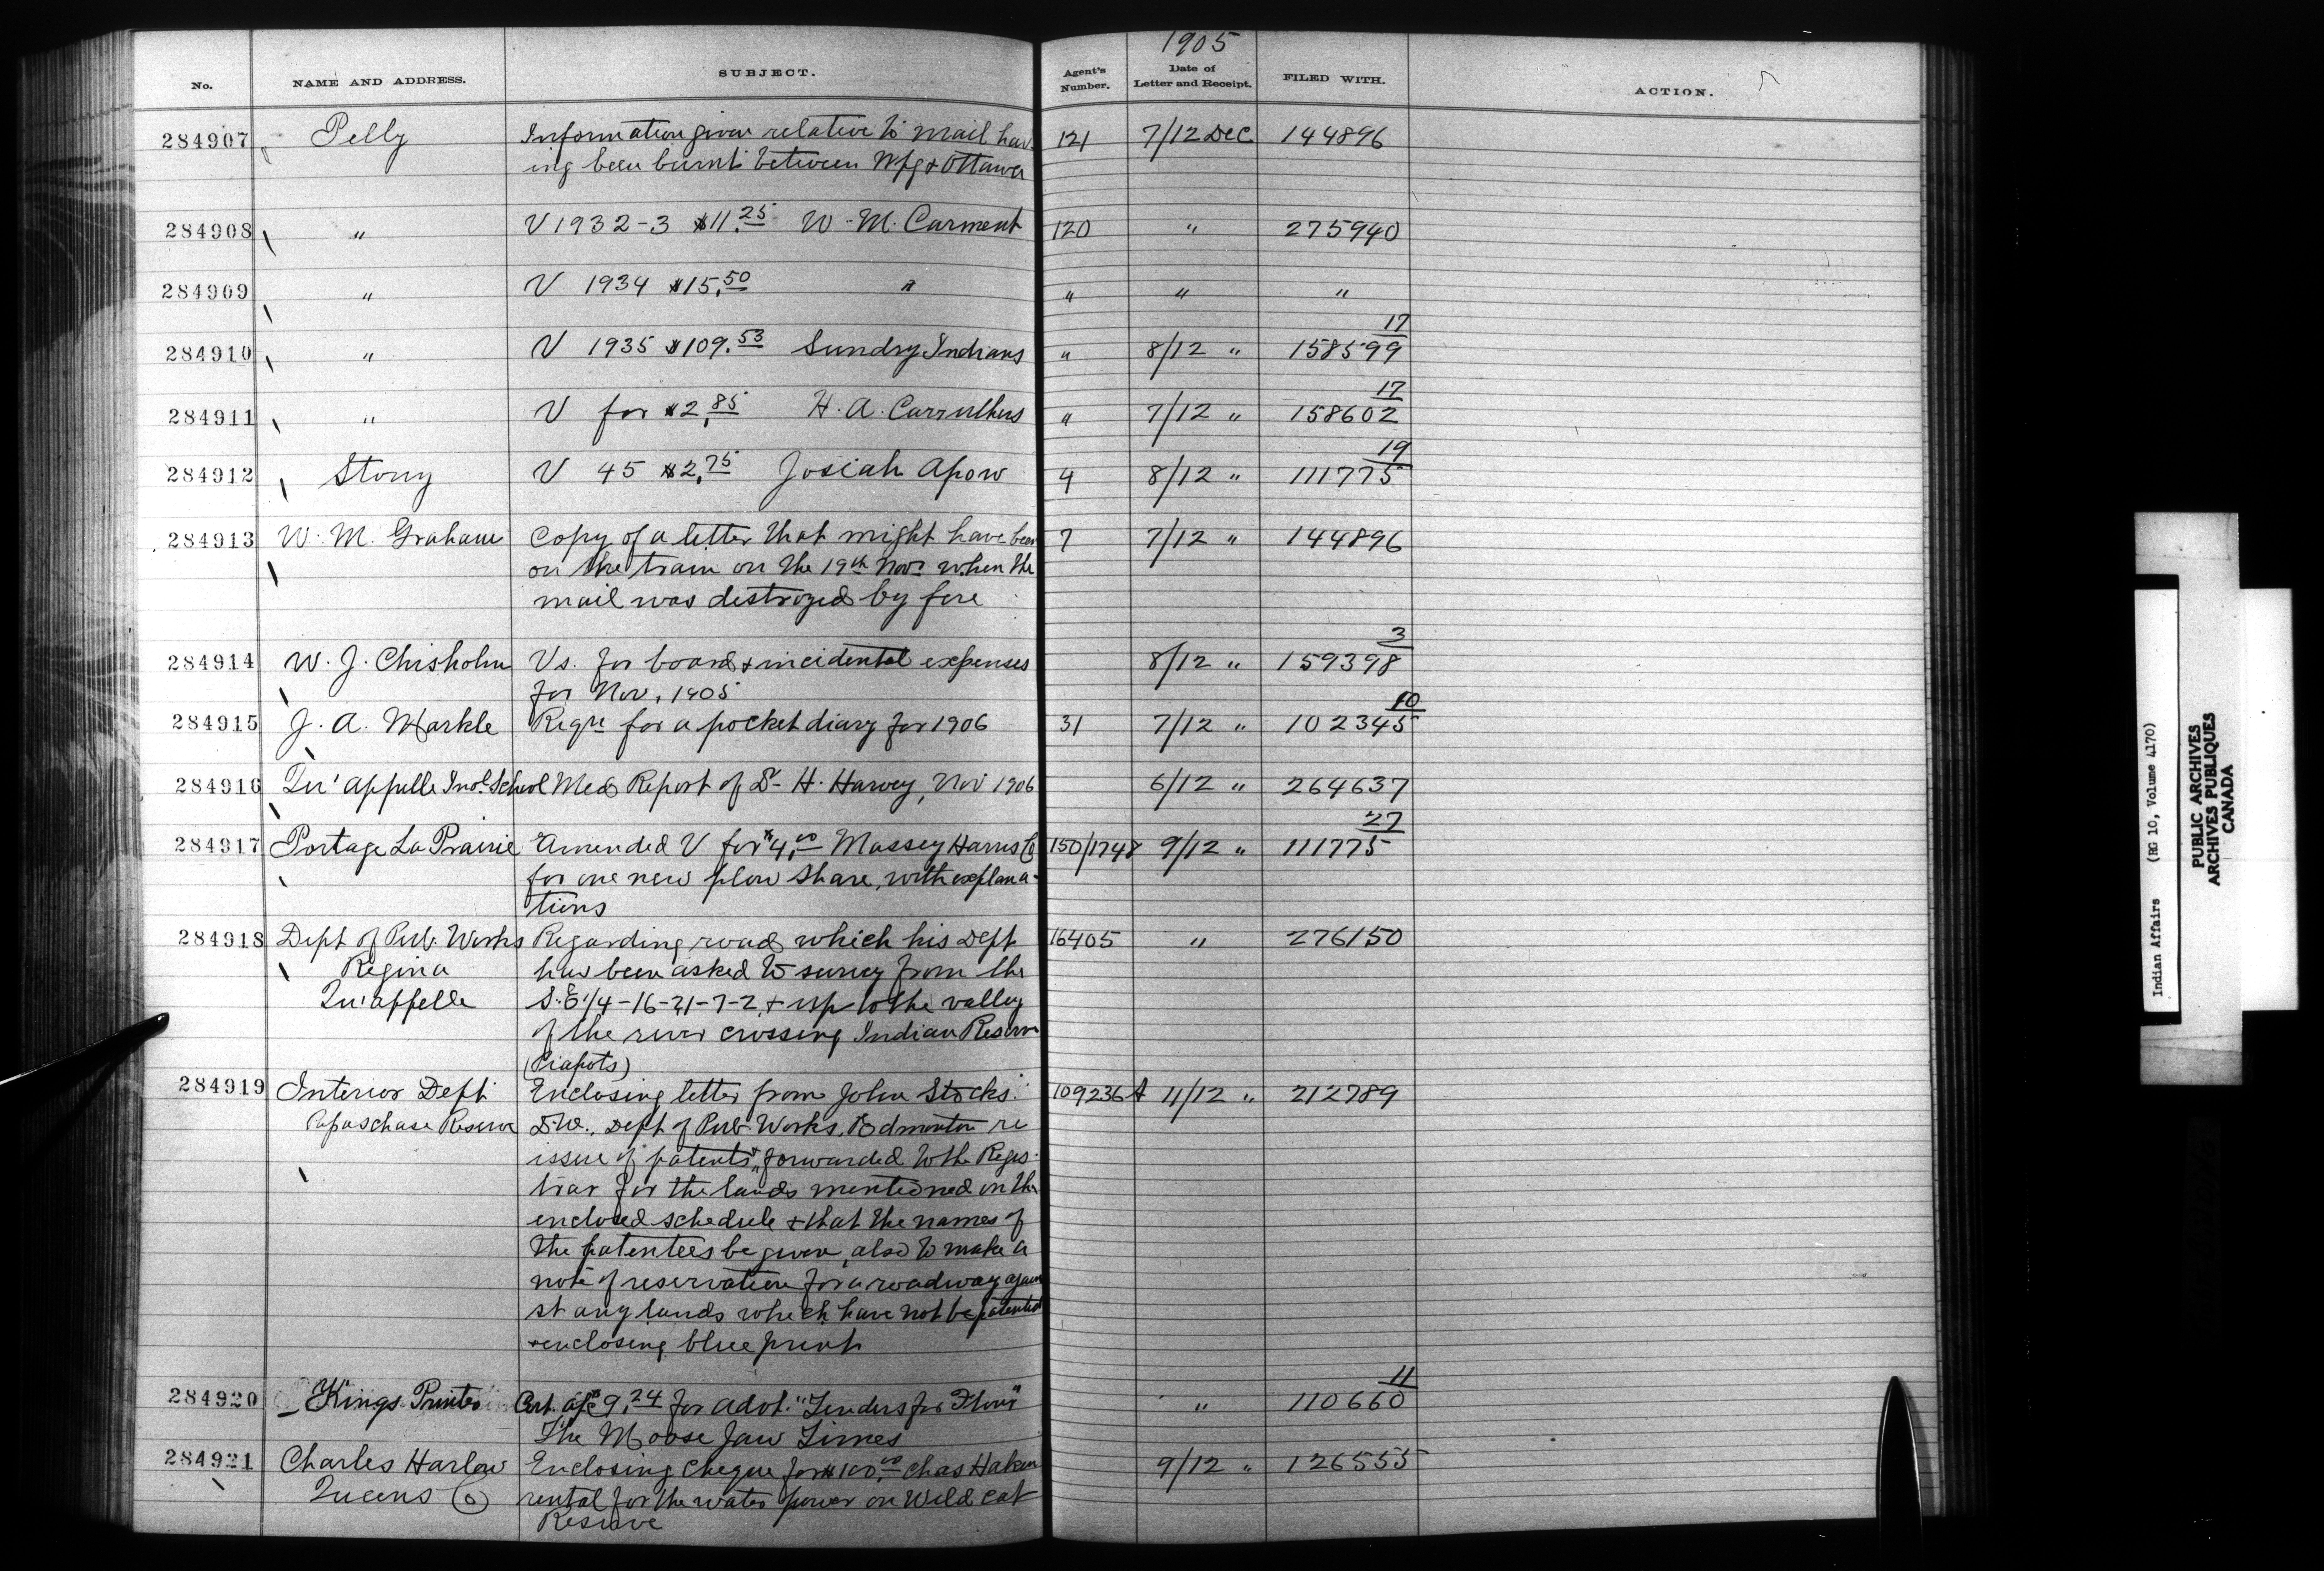 1905
No. NAME AND ADDRESS. SUBJECT. Agent's Number. Date of Letter and Receipt. FILED WITH. ACTION.
284907 Pelly Information given relative to mail hav- 121 7/12 Dec 144896
ing been burnt between Wpg & Ottawa
284908 " V 1932-3 $11.25 W. M. Carment 120 " 275940
284909 " V 1934 $15.50 " " " "
17
284910 " V 1935 $109.53 Sundry Indians " 8/12 " 158599
17
284911 " V for $2.85 H. A. Carruthers " 7/12 " 158602
19
284912 Stony V 45 $2.75 Josiah Apow 4 8/12 " 111775
284913 W. M. Graham Copy of a letter that might have been 7 7/12 " 144896
on the train on the 19th Novr when the
mail was destroyed by fire
3
284914 W. J. Chisholm Vs. for board & incidental expenses 8/12 " 159398
for Nov. 1905
10
284915 J. A. Markle Reqn for a pocket diary for 1906 31 7/12 " 102345
284916 Qu'appelle Indl School Med Report of Dr H. Harvey, Nov 1906 6/12 " 264637
27
284917 Portage La Prairie Amended V for $4.00 Massey Harris Co 150/1748 9/12 " 111775
for one new plow share, with explana-
tions
284918 Dept of Pub. Works Regarding road which his Dept 16405 " 276150
Regina has been asked to survey from the
Qu'appelle S.E 1/4-16-21-7-2, & up to the valley
of the river crossing Indian Reserve
(Piapots)
284919 Interior Dept Enclosing letter from John Stocks 109236 A 11/12 " 212789
Papaschase Reserve Dept of Pub. Works, Edmonton re
issue of patents & forwarded to the Regis-
trar for the lands mentioned on the
enclosed schedule & that the names of
the patentees be given, also to make a
note of reservation for a roadway again
st any lands which have not be patented
& enclosing blue print
11
284920 Kings Printer $9.24 for advt. "Tenders for Flour" " 110660
The Moose Jaw Times
284921 Charles Harlow Enclosing cheque for $100.00 Chas 9/12 " 126555
Queens Co rental for the water power on Wild cat
Reserve
Indian Affairs (RG 10, Volume 4170)
PUBLIC ARCHIVES
ARCHIVES PUBLIQUES
CANADA